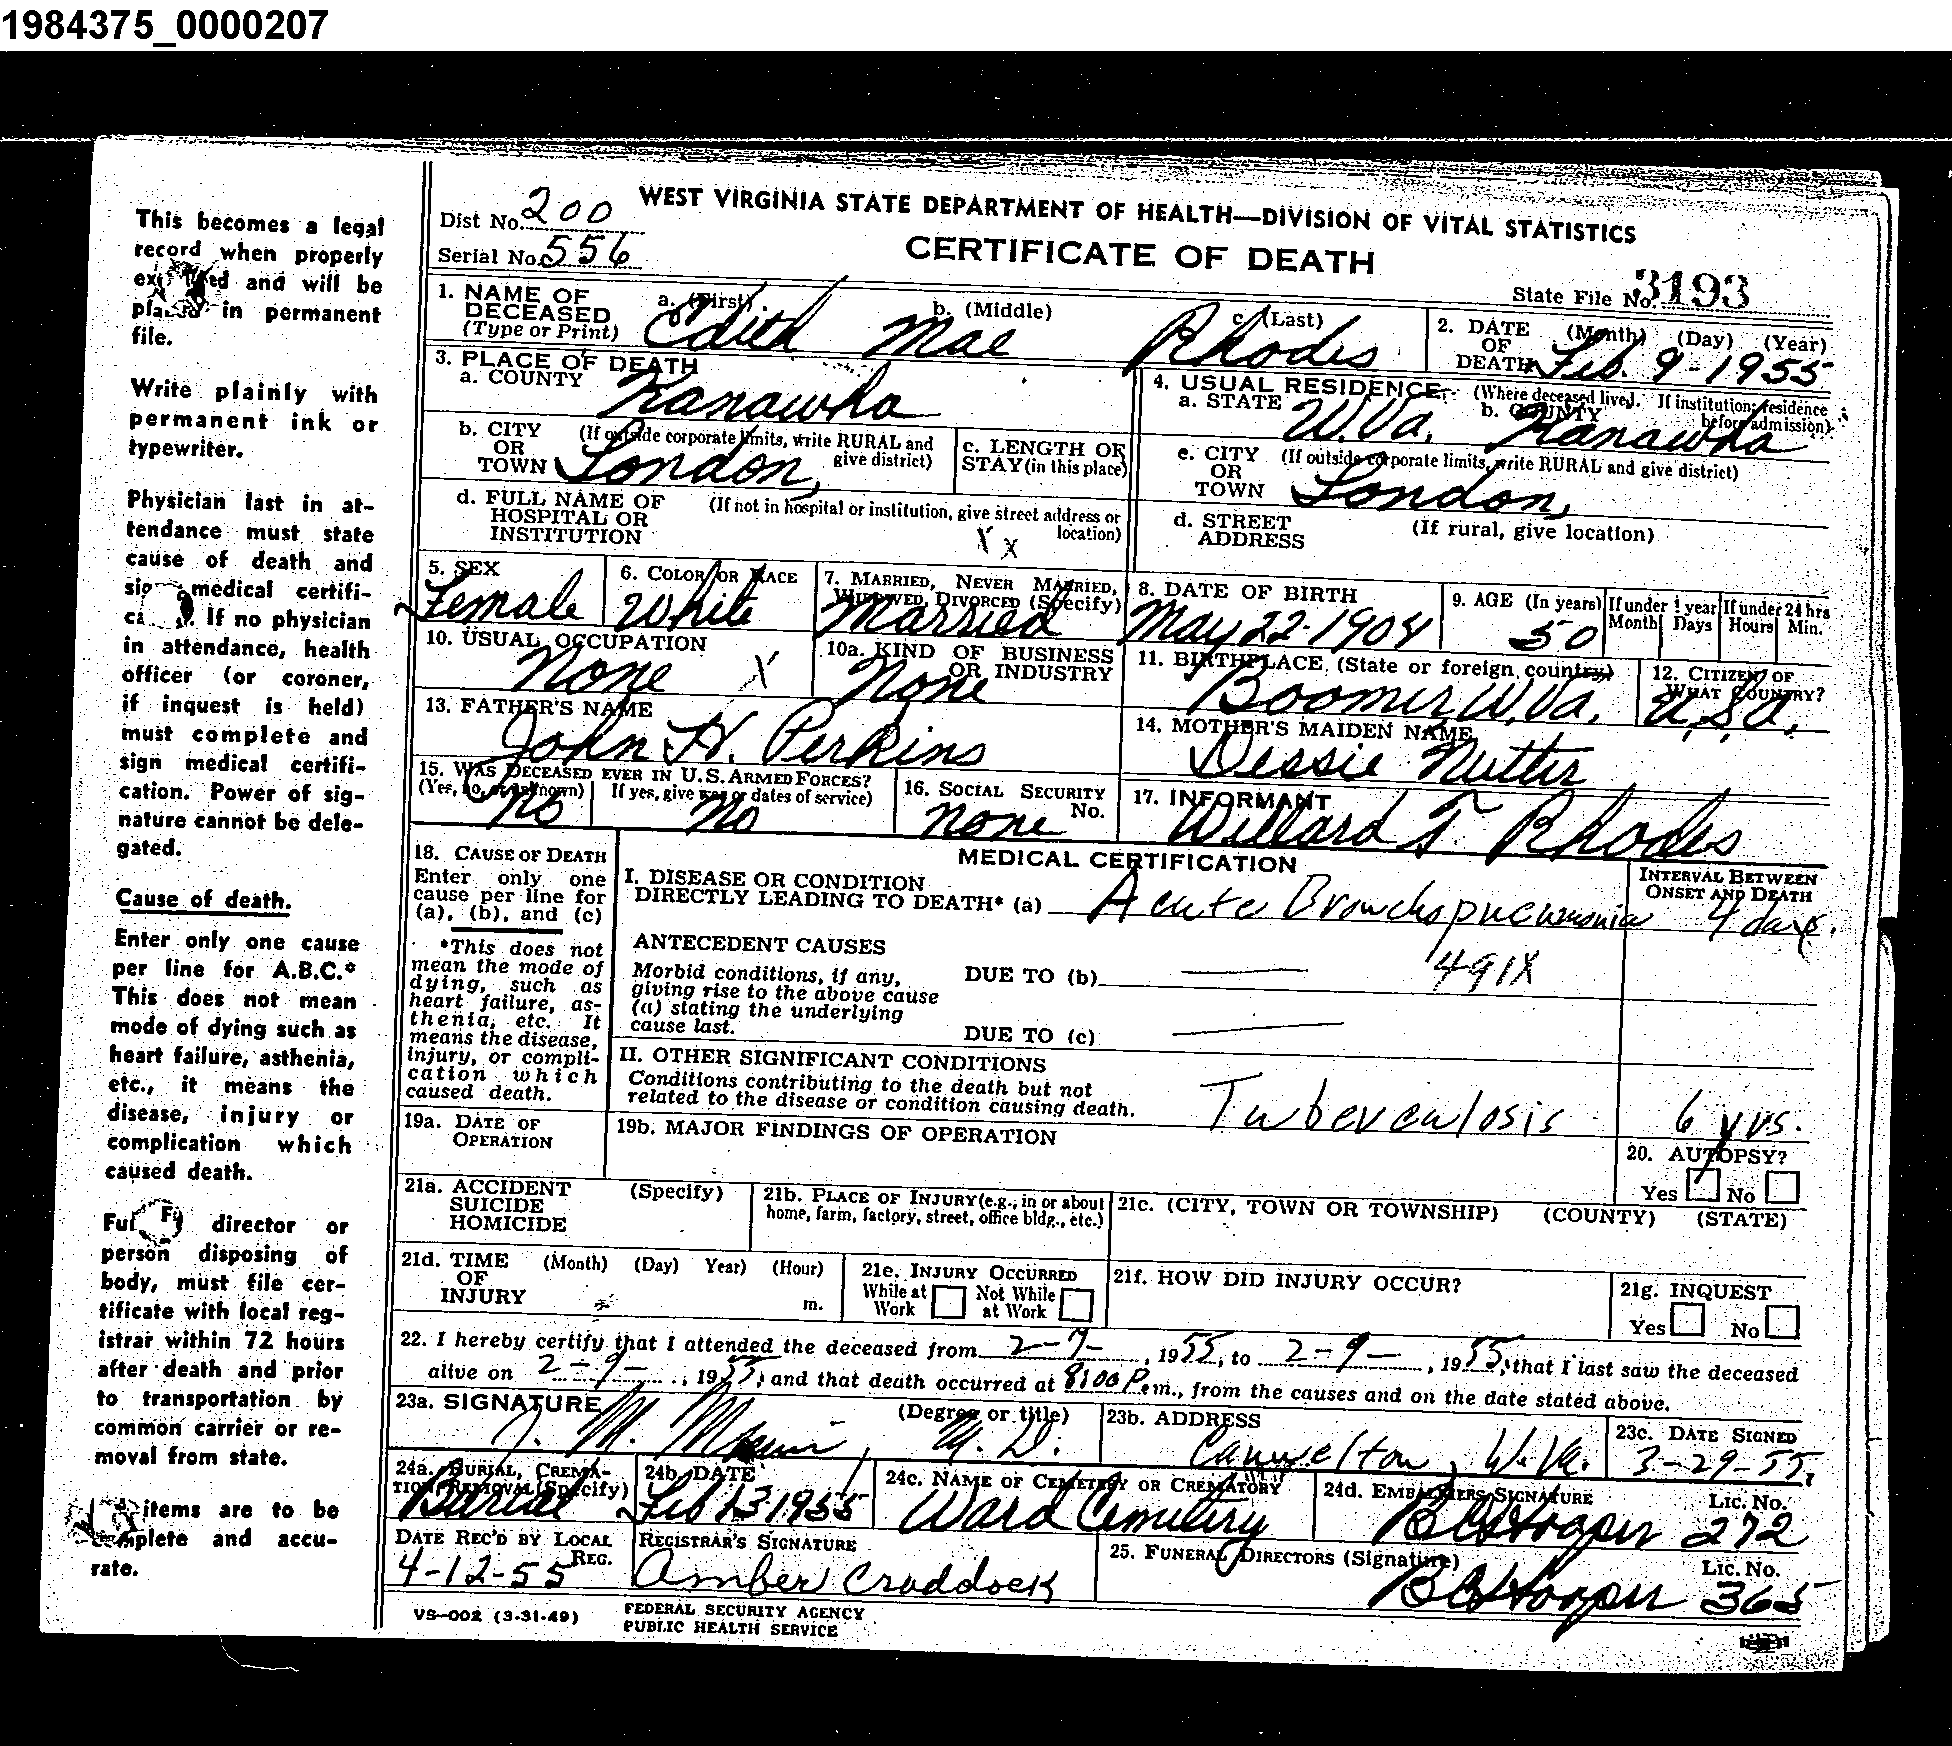 1984375_0000207
This becomes a legal
record when properly
and will be
in permanent
file.
Write plainly with
permanent ink or
typewriter.
Physician last in at-
tendance must state
cause of death and
medical certifi-
If no physician
in attendance, health
officer (or coroner,
if inquest is held)
must complete and
sign medical certifi-
cation. Power of sig-
nature cannot be dele-
gated.
Cause of death.
Enter only one cause
per line for A.B.C.*
This does not mean
mode of dying such as
heart failure, asthenia,
etc., it means the
disease, injury or
complication which
caused death.
director or
person disposing of
body, must file cer-
tificate with local reg-
istrar within 72 hours
after death and prior
to transportation by
common carrier or re-
moval from state.
items are to be
complete and accu-
rate.
Dist No. 200
Serial No. 556
WEST VIRGINIA STATE DEPARTMENT OF HEALTH—DIVISION OF VITAL STATISTICS
CERTIFICATE OF DEATH
State File No. 3193
1. NAME OF DECEASED (Type or Print) a. (First) b. (Middle) c. (Last)
Edith Mae Rhodes
2. DATE OF DEATH (Month) (Day) (Year)
Feb. 9-1955
3. PLACE OF DEATH
a. COUNTY Kanawha
4. USUAL RESIDENCE (Where deceased lived. If institution; residence before admission)
a. STATE W.Va. b. COUNTY Kanawha
b. CITY OR TOWN (If outside corporate limits, write RURAL and give district) London,
c. LENGTH OF STAY (in this place)
c. CITY OR TOWN (If outside corporate limits, write RURAL and give district) London,
d. FULL NAME OF HOSPITAL OR INSTITUTION (If not in hospital or institution, give street address or location) x x
d. STREET ADDRESS (If rural, give location)
5. SEX Female
6. COLOR OR RACE White
7. MARRIED, NEVER MARRIED, WIDOWED, DIVORCED (Specify) Married
8. DATE OF BIRTH May 22-1904
9. AGE (In years) 50
If under 1 year Month Days
If under 24 hrs Hours Min.
10. USUAL OCCUPATION None X
10a. KIND OF BUSINESS OR INDUSTRY None
11. BIRTHPLACE (State or foreign country) Boomer W.Va.
12. CITIZEN OF WHAT COUNTRY? U.S.A.
13. FATHER'S NAME John H. Perkins
14. MOTHER'S MAIDEN NAME Dessie Nutter
15. WAS DECEASED EVER IN U.S. ARMED FORCES?
(Yes, no, or unknown) No If yes, give war or dates of service) No
16. SOCIAL SECURITY No. none
17. INFORMANT Willard T. Rhodes
18. CAUSE OF DEATH
Enter only one
cause per line for
(a), (b), and (c)
*This does not
mean the mode of
dying, such as
heart failure, as-
thenia, etc. It
means the disease,
injury, or compli-
cation which
caused death.
MEDICAL CERTIFICATION
INTERVAL BETWEEN ONSET AND DEATH
I. DISEASE OR CONDITION
DIRECTLY LEADING TO DEATH* (a) Acute Bronchopneumonia 4 days.
ANTECEDENT CAUSES
Morbid conditions, if any,
giving rise to the above cause
(a) stating the underlying
cause last.
DUE TO (b) 491X
DUE TO (c)
II. OTHER SIGNIFICANT CONDITIONS
Conditions contributing to the death but not
related to the disease or condition causing death.
Tuberculosis 6 yrs.
19a. DATE OF OPERATION
19b. MAJOR FINDINGS OF OPERATION
20. AUTOPSY?
Yes No
21a. ACCIDENT SUICIDE HOMICIDE (Specify)
21b. PLACE OF INJURY (e.g., in or about home, farm, factory, street, office bldg., etc.)
21c. (CITY, TOWN OR TOWNSHIP) (COUNTY) (STATE)
21d. TIME OF INJURY (Month) (Day) Year) (Hour) m.
21e. INJURY OCCURRED
While at Work Not While at Work
21f. HOW DID INJURY OCCUR?
21g. INQUEST
Yes No
22. I hereby certify that I attended the deceased from 2-7-, 1955, to 2-9-, 1955, that I last saw the deceased
alive on 2-9-, 1955, and that death occurred at 8:00 P.m., from the causes and on the date stated above.
23a. SIGNATURE (Degree or title) M. D.
23b. ADDRESS Cannelton, W.Va.
23c. DATE SIGNED 3-29-55.
24a. BURIAL, CREMATION, REMOVAL (Specify) Burial
24b. DATE Feb 13 1955
24c. NAME OF CEMETERY OR CREMATORY Ward Cemetery
24d. EMBALMERS SIGNATURE Lic. No.
BC Hooper 272
DATE REC'D BY LOCAL REG. 4-12-55
REGISTRAR'S SIGNATURE Amber Craddock
25. FUNERAL DIRECTORS (Signature) Lic. No.
BC Hooper 365
VS-002 (3-31-49)
FEDERAL SECURITY AGENCY
PUBLIC HEALTH SERVICE